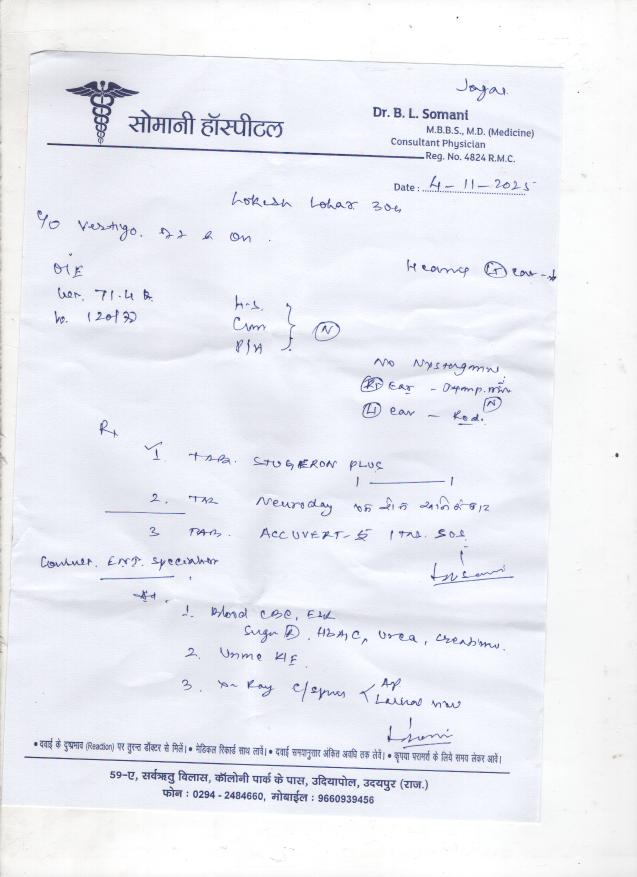 सोमानी हॉस्पीटल
Dr. B. L. Somani
M.B.B.S., M.D. (Medicine)
Consultant Physician
Reg. No. 4824 R.M.C.
Date : 4-11-2025
Lokesh Lohar 30y
Vertigo.
O/E
Hearing Lt ear
120/80
H-S.
P/A
N
No Nystagmus
Rt Ear
Lt ear - Red. N
Rx
1. TAB. STUGERON PLUS
1 ——— 1
2. TAB Neuroday
3 TAB. ACCUVERT- 1 TAB. SOS
ENT. Specialist
1. Blood CBC, ESR
Sugar R, HbA1C, Urea, Creatinine.
2. Urine
3. X-Ray C/Spine < AP
Lateral view
• दवाई के दुष्प्रभाव (Reaction) पर तुरन्त डॉक्टर से मिलें। • मेडिकल रिकार्ड साथ लावें। • दवाई समयानुसार अंकित अवधि तक लेवें। • कृपया परामर्श के लिये समय लेकर आवें।
59-ए, सर्वऋतु विलास, कॉलोनी पार्क के पास, उदियापोल, उदयपुर (राज.)
फोन : 0294 - 2484660, मोबाईल : 9660939456